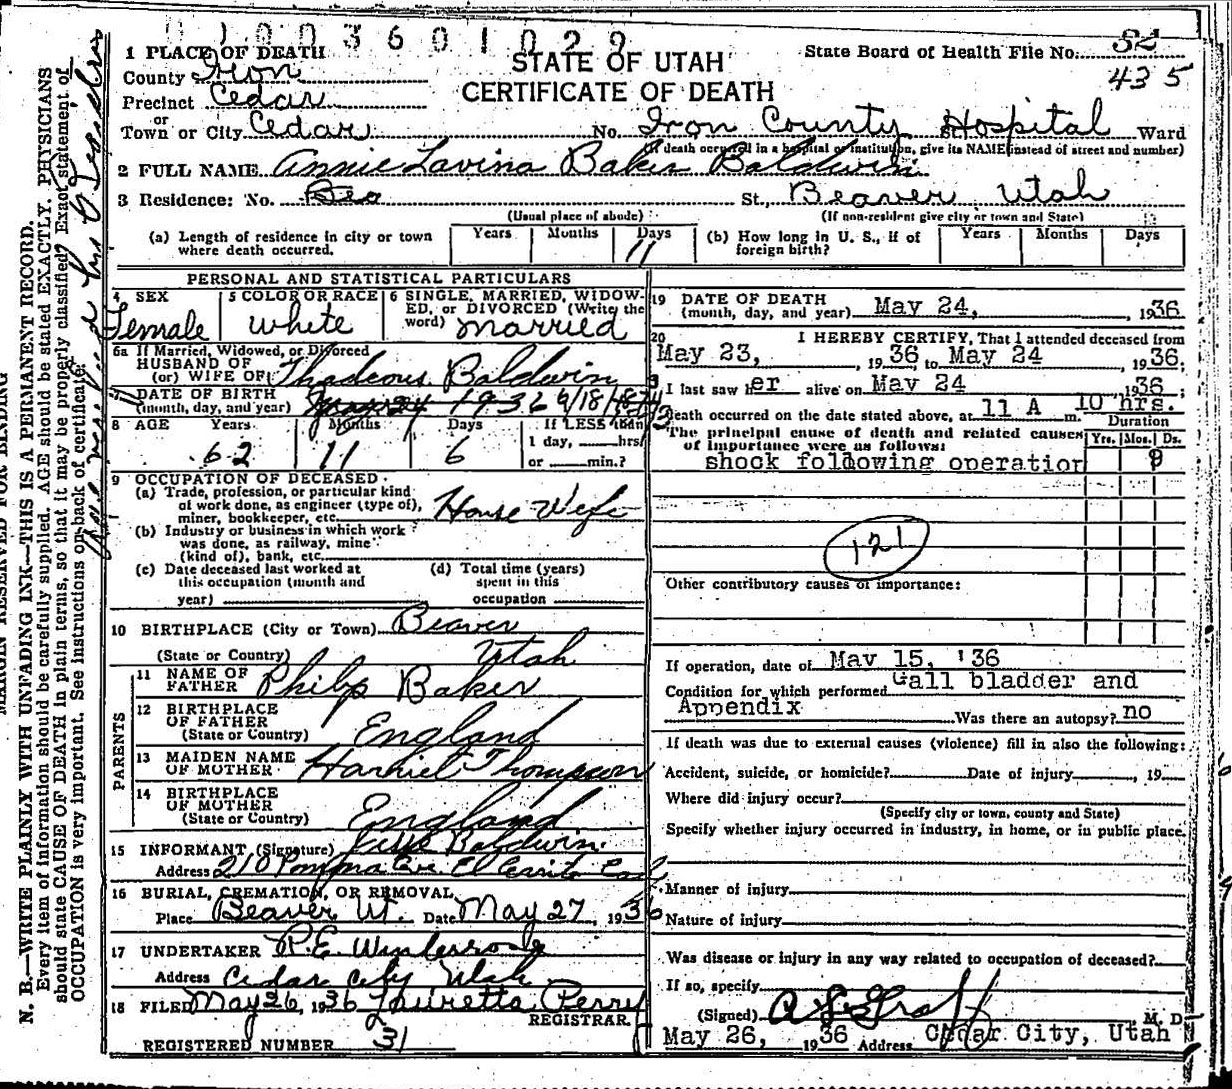 0 1 0 0 3 6 0 1 0 2 9
STATE OF UTAH
CERTIFICATE OF DEATH
State Board of Health File No. 82
435
1 PLACE OF DEATH
County Iron
Precinct Cedar
or
Town or City Cedar No. Iron County St. Hospital Ward
(If death occurred in a hospital or institution, give its NAME instead of street and number)
2 FULL NAME Annie Lavina Baker Baldwin
3 Residence: No. Bea St., Beaver Utah
(Usual place of abode) (If non-resident give city or town and State)
(a) Length of residence in city or town where death occurred. Years Months Days 11
(b) How long in U. S., if of foreign birth? Years Months Days
PERSONAL AND STATISTICAL PARTICULARS
4 SEX Female
5 COLOR OR RACE White
6 SINGLE, MARRIED, WIDOWED, or DIVORCED (Write the word) Married
6a If Married, Widowed, or Divorced
HUSBAND OF
(or) WIFE OF Thadeous Baldwin
7 DATE OF BIRTH
(month, day, and year) May 24 1936
8 AGE Years 62 Months 11 Days 6 If LESS than 1 day, hrs. or min.?
9 OCCUPATION OF DECEASED
(a) Trade, profession, or particular kind of work done, as engineer (type of), miner, bookkeeper, etc. House Wife
(b) Industry or business in which work was done, as railway, mine (kind of), bank, etc.
(c) Date deceased last worked at this occupation (month and year)
(d) Total time (years) spent in this occupation
10 BIRTHPLACE (City or Town) Beaver
(State or Country) Utah
PARENTS
11 NAME OF FATHER Philip Baker
12 BIRTHPLACE OF FATHER
(State or Country) England
13 MAIDEN NAME OF MOTHER Harriet Thompson
14 BIRTHPLACE OF MOTHER
(State or Country) England
15 INFORMANT (Signature) Baldwin
Address 210 Pomona Ave. El Cerrito Cal
16 BURIAL, CREMATION, OR REMOVAL
Place Beaver Ut. Date May 27, 1936
17 UNDERTAKER R.E. Winterrose
Address Cedar City Utah
18 FILED May 26, 1936 Lauretta Perry
REGISTRAR.
REGISTERED NUMBER 31
19 DATE OF DEATH
(month, day, and year) May 24, 1936
20 I HEREBY CERTIFY, That I attended deceased from
May 23, 1936, to May 24 1936;
I last saw her alive on May 24 1936;
death occurred on the date stated above, at 11 A m. 10 hrs.
Duration
The principal cause of death and related causes of importance were as follows: Yrs. Mos. Ds.
shock following operation 9
121
Other contributory causes of importance:
If operation, date of May 15, '36
Condition for which performed Gall bladder and
Appendix Was there an autopsy? no
If death was due to external causes (violence) fill in also the following:
Accident, suicide, or homicide? Date of injury , 19
Where did injury occur?
(Specify city or town, county and State)
Specify whether injury occurred in industry, in home, or in public place.
Manner of injury
Nature of injury
Was disease or injury in any way related to occupation of deceased?
If so, specify
(Signed) M. D.
May 26, 1936 Address Cedar City, Utah
MARGIN RESERVED FOR BINDING
N. B.—WRITE PLAINLY WITH UNFADING INK—THIS IS A PERMANENT RECORD.
Every item of information should be carefully supplied. AGE should be stated EXACTLY. PHYSICIANS
should state CAUSE OF DEATH in plain terms, so that it may be properly classified? Exact statement of
OCCUPATION is very important. See instructions on back of certificate.